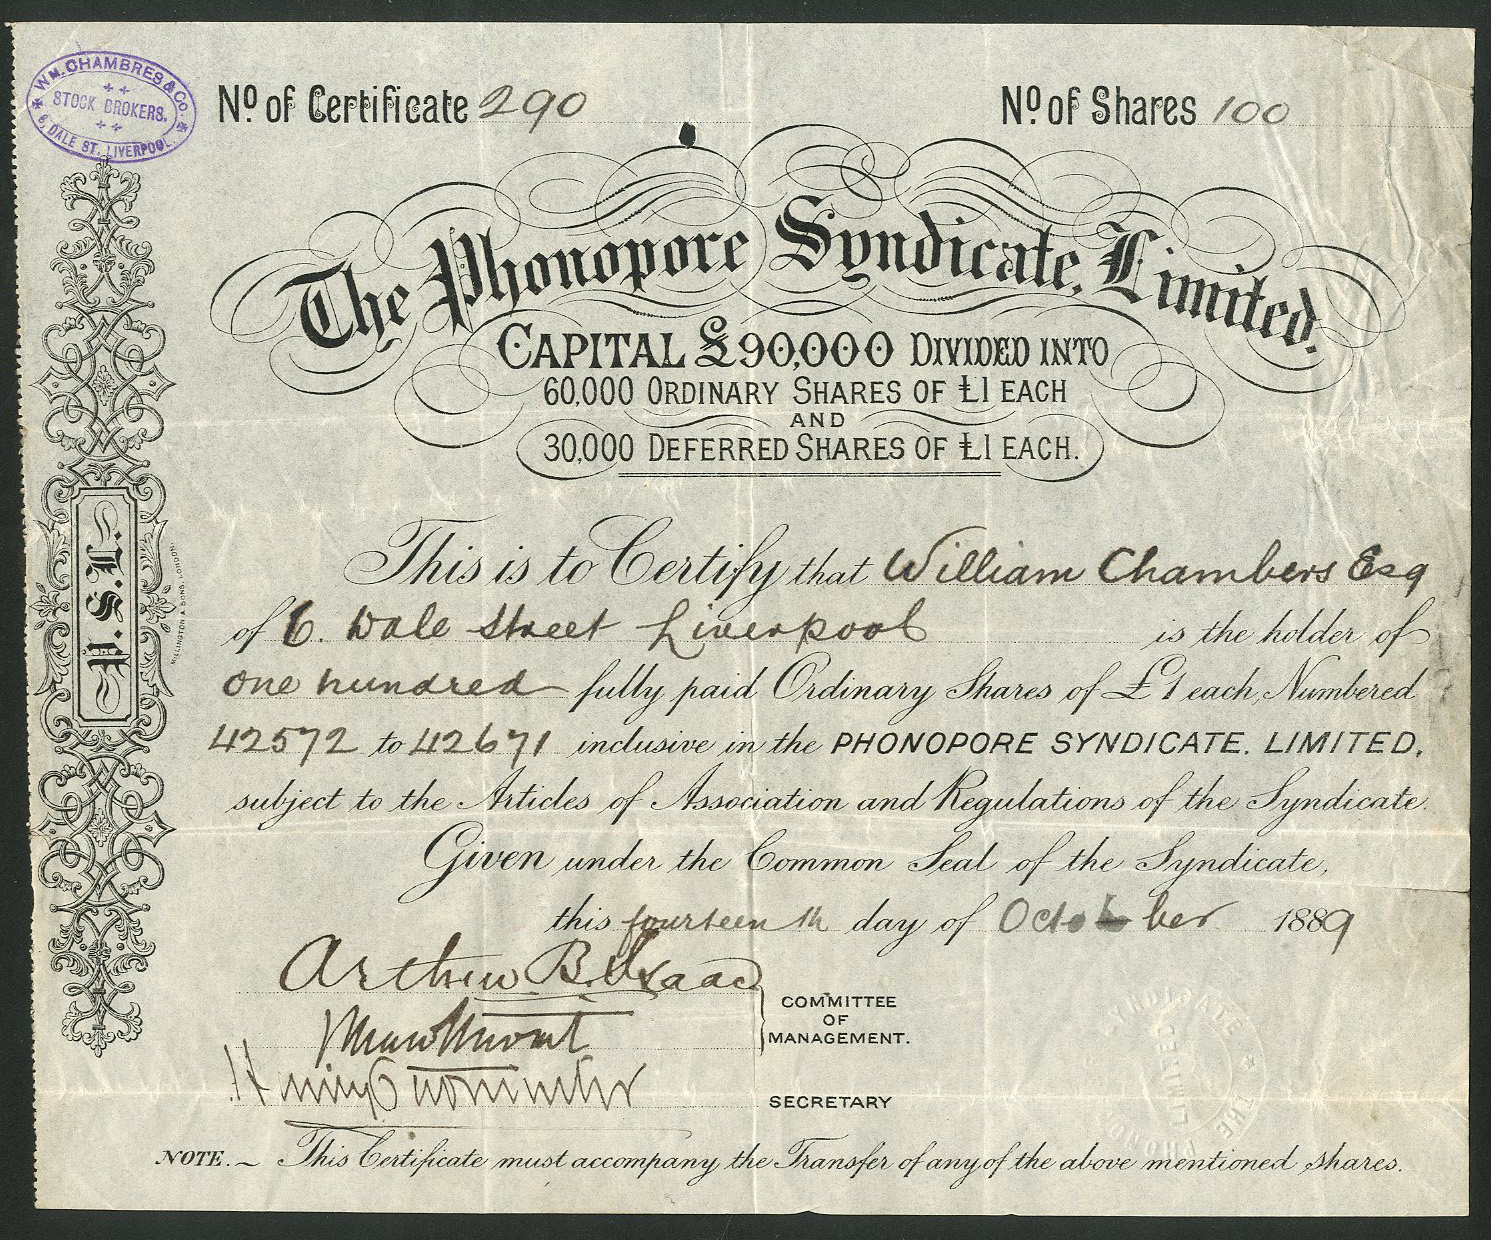 WM. CHAMBRES & Co.
STOCK BROKERS.
6, DALE ST. LIVERPOOL.
No. of Certificate 290
No. of Shares 100
The Phonopore Syndicate, Limited.
CAPITAL £90,000 DIVIDED INTO
60,000 ORDINARY SHARES OF £1 EACH
AND
30,000 DEFERRED SHARES OF £1 EACH.
P.S.L.
WILLINGTON & SONS, LONDON.
This is to Certify that William Chambers Esq
of 6. Dale Street Liverpool is the holder of
one hundred fully paid Ordinary Shares of £1 each, Numbered
42572 to 42671 inclusive in the PHONOPORE SYNDICATE, LIMITED,
subject to the Articles of Association and Regulations of the Syndicate.
Given under the Common Seal of the Syndicate,
this fourteenth day of October 1889
Arthur B. Isaac
COMMITTEE
OF
MANAGEMENT.
SECRETARY
NOTE. ~ This Certificate must accompany the Transfer of any of the above mentioned shares.
THE PHONOPORE SYNDICATE
LIMITED